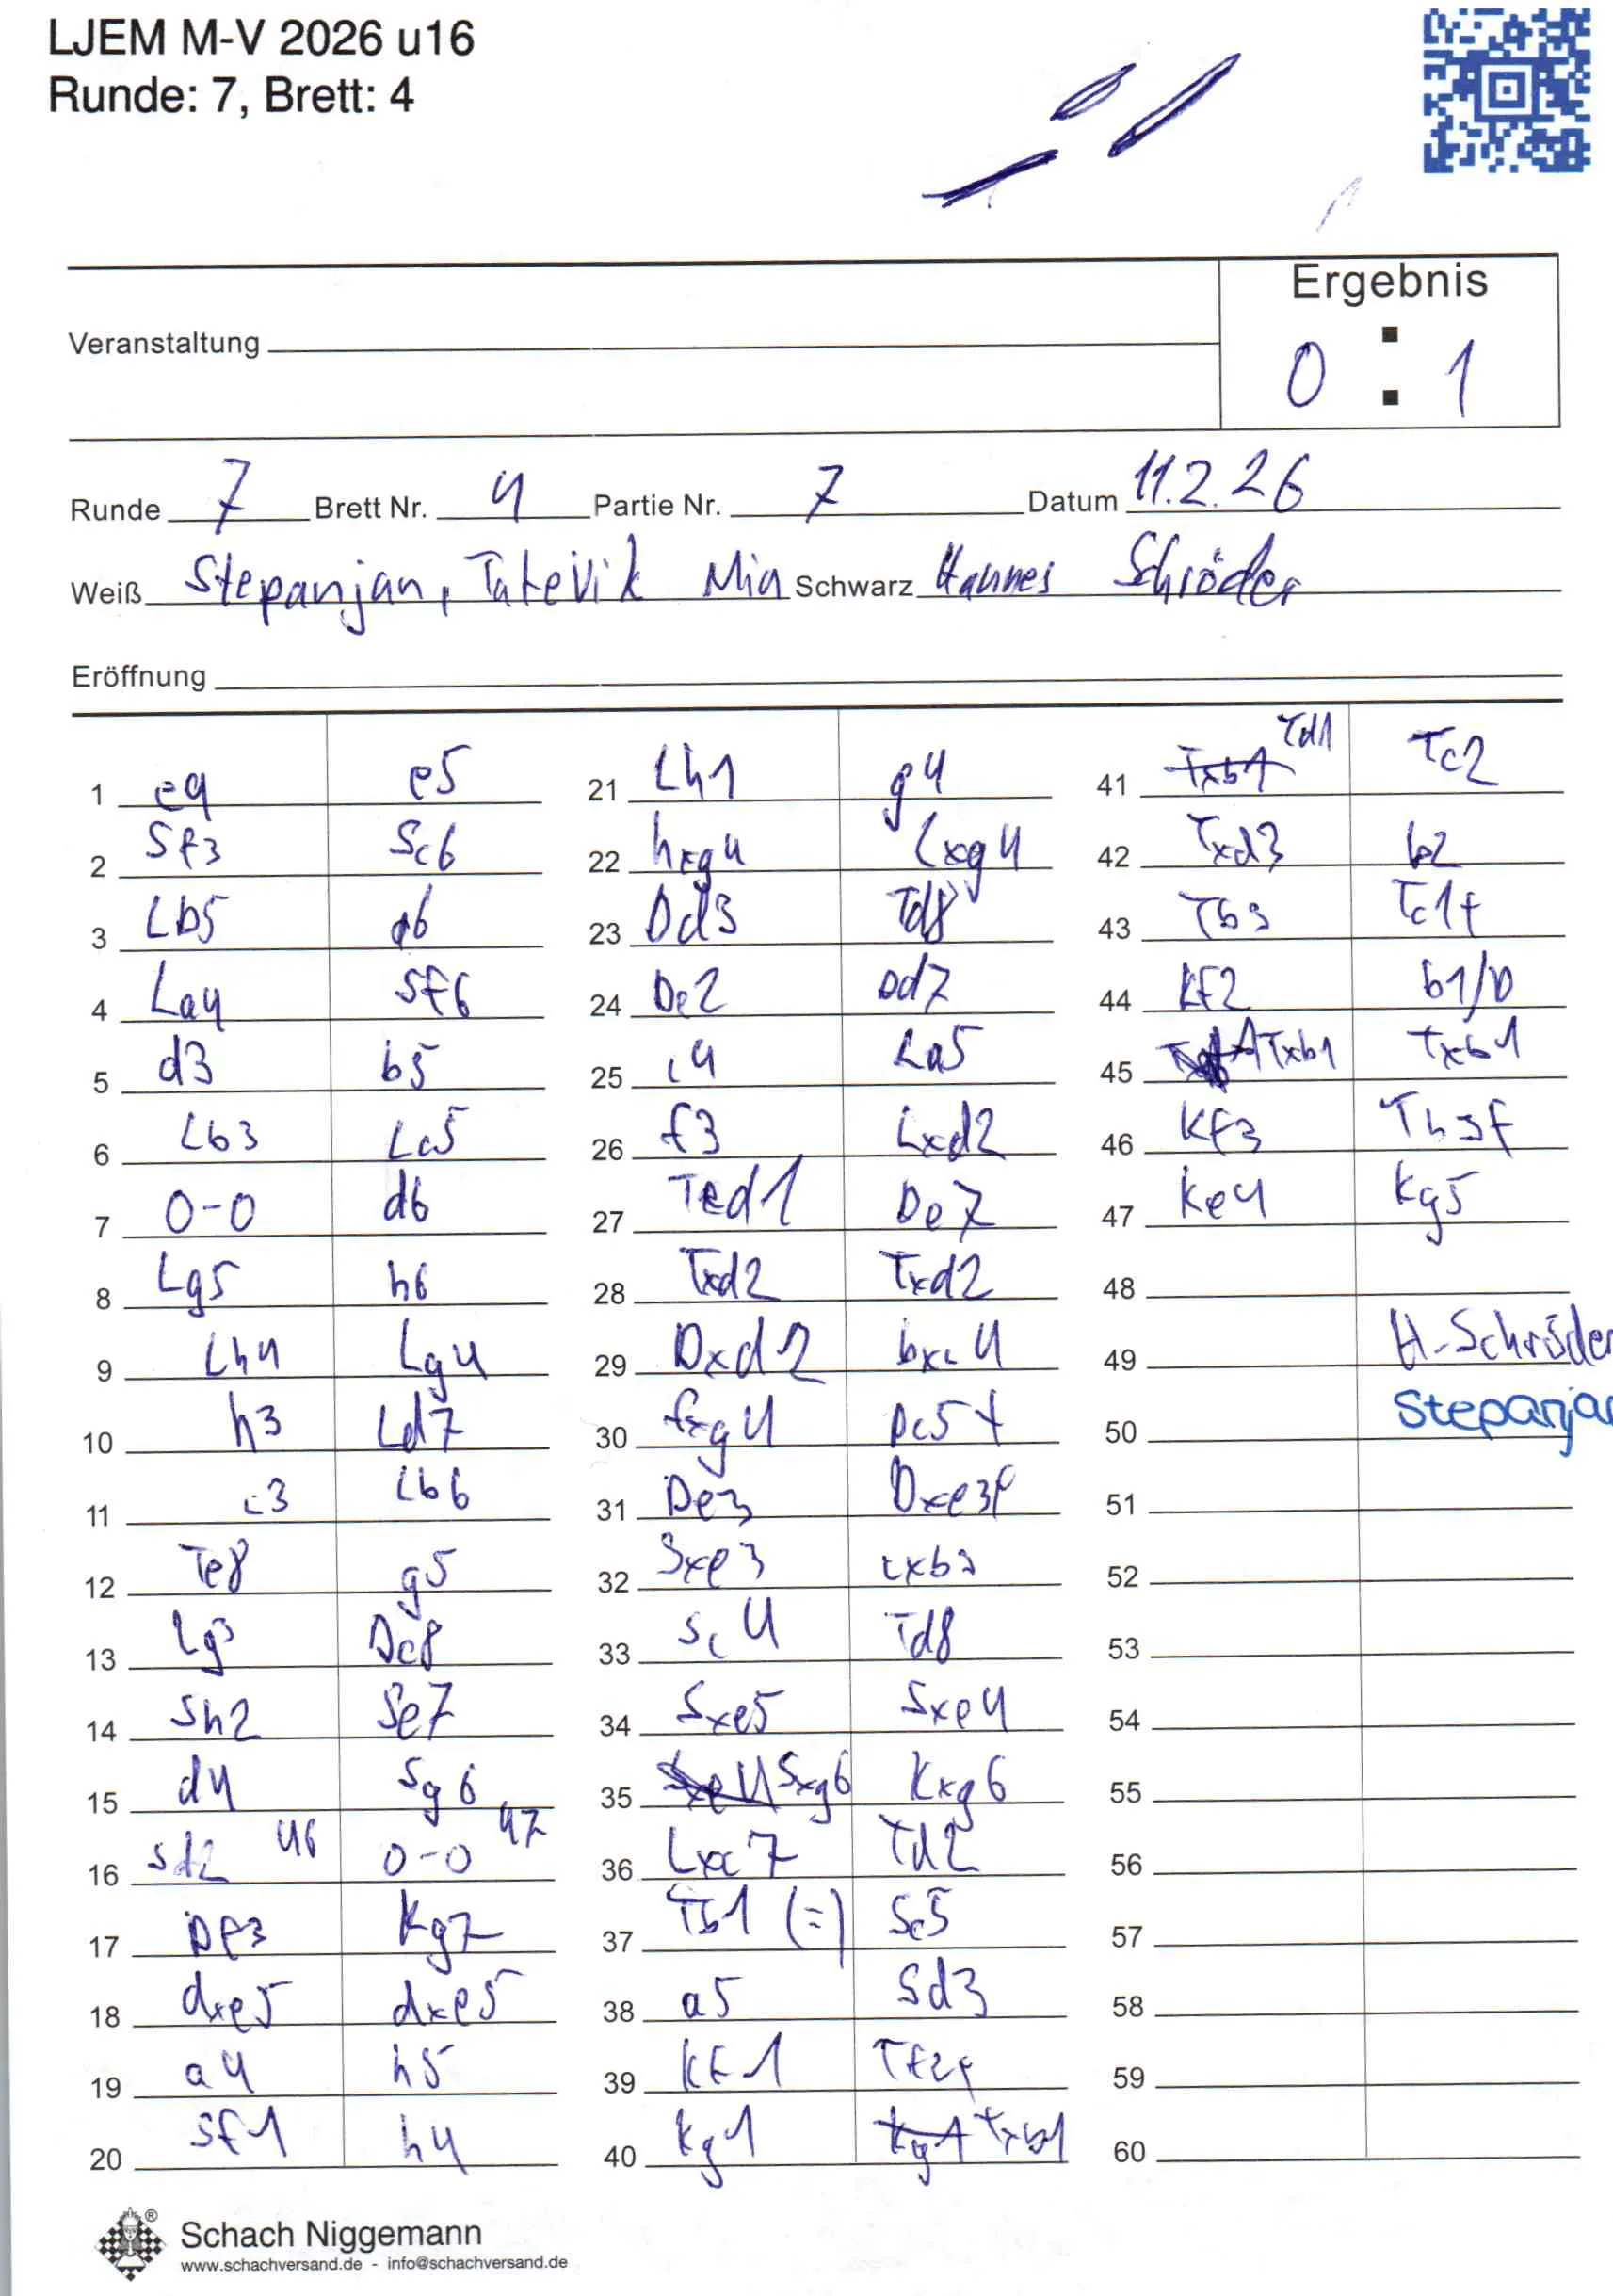 LJEM M-V 2026 u16
Runde: 7, Brett: 4
Ergebnis
Veranstaltung
0 : 1
Runde 7 Brett Nr. 4 Partie Nr. 7 Datum 11.2.26
Weiß Stepanjan, Tatevik Mia Schwarz Hannes Schröder
Eröffnung
1 e4 e5
2 Sf3 Sc6
3 Lb5 a6
4 La4 Sf6
5 d3 b5
6 Lb3 Lc5
7 0-0 d6
8 Lg5 h6
9 Lh4 Lg4
10 h3 Ld7
11 c3 Lb6
12 Te8 g5
13 Lg3 Dc8
14 Sh2 Se7
15 d4 Sg6
16 Sd2 46 0-0 47
17 Df3 Kg7
18 dxe5 dxe5
19 a4 h5
20 Sf1 h4
21 Lh1 g4
22 hxg4 Lxg4
23 Dd3 Td8
24 De2 Dd7
25 c4 La5
26 f3 Lxd2
27 Ted1 De7
28 Txd2 Txd2
29 Dxd2 bxc4
30 fxg4 Dc5+
31 De3 Dxe3+
32 Sxe3 cxb3
33 Sc4 Td8
34 Sxe5 Sxe4
35 Sxg6 Kxg6
36 Lxc7 Td2
37 Tb1 (=) Sc5
38 a5 Sd3
39 Kf1 Tf2+
40 Kg1 Kg1 Txb1
41 Txb1 Td1 Tc2
42 Txd3 b2
43 Tb3 Tc1+
44 Kf2 b1/D
45 Txb1 Txb1
46 Kf3 Tb3+
47 Ke4 Kg5
48
49 H-Schröder
50 Stepanjan
51
52
53
54
55
56
57
58
59
60
Schach Niggemann
www.schachversand.de - info@schachversand.de